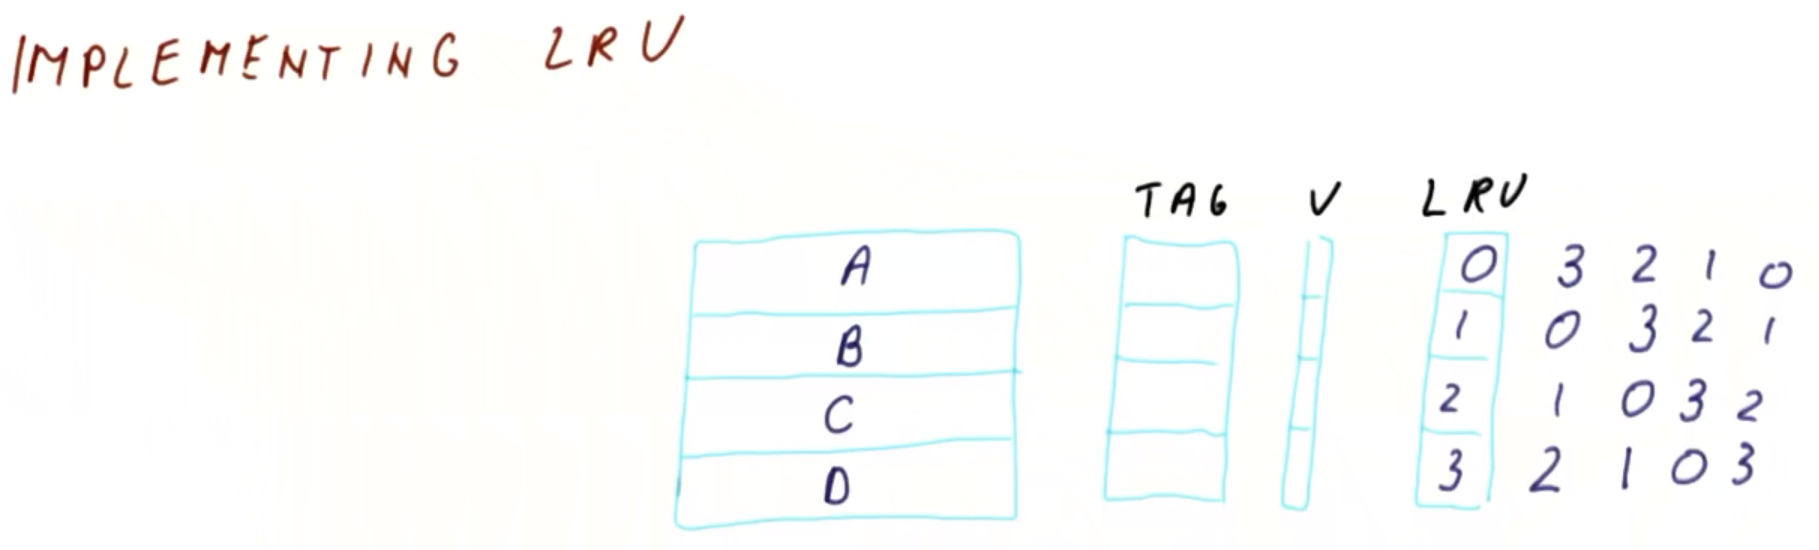 IMPLEMENTING LRU
TAG V LRU
A 0 3 2 1 0
B 1 0 3 2 1
C 2 1 0 3 2
D 3 2 1 0 3